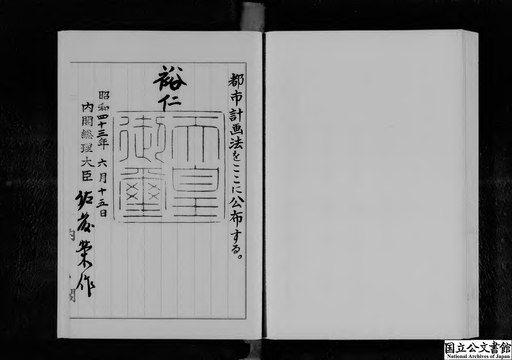 都市計画法をここに公布する。
裕仁
天皇御璽
昭和四十三年六月十五日
内閣総理大臣 佐藤榮作
国立公文書館
National Archives of Japan